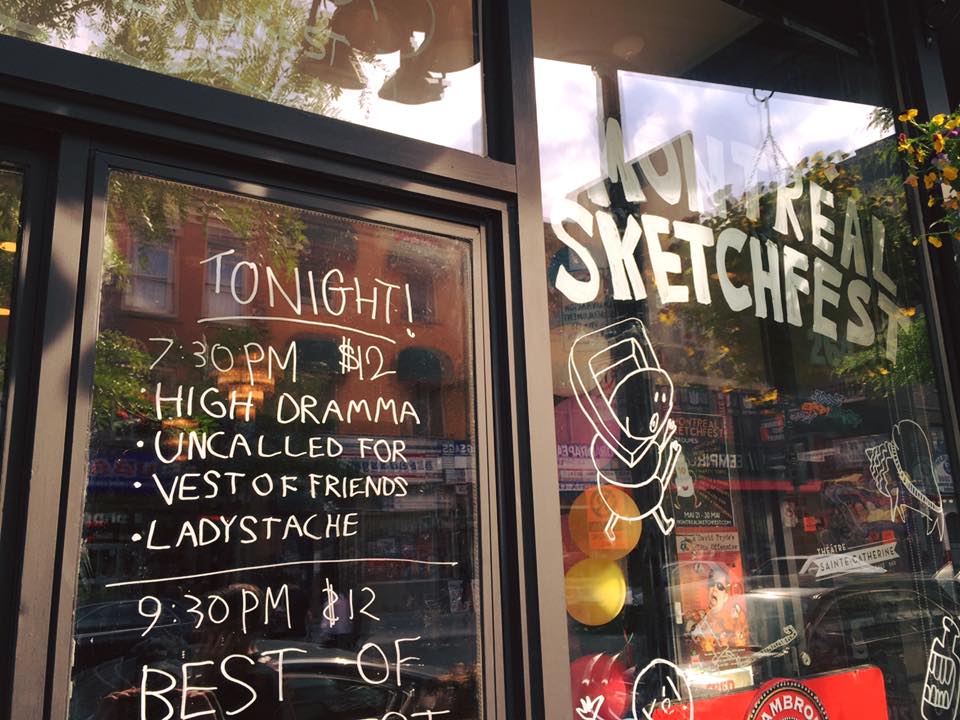 TONIGHT!
7:30PM $12
• HIGH DRAMMA
• UNCALLED FOR
• VEST OF FRIENDS
• LADYSTACHE
9:30PM $12
BEST OF
MONTREAL
SKETCHFEST
MAI 21 - 30 MAI
MONTREALSKETCHFEST.COM
THÉÂTRE
SAINTE CATHERINE